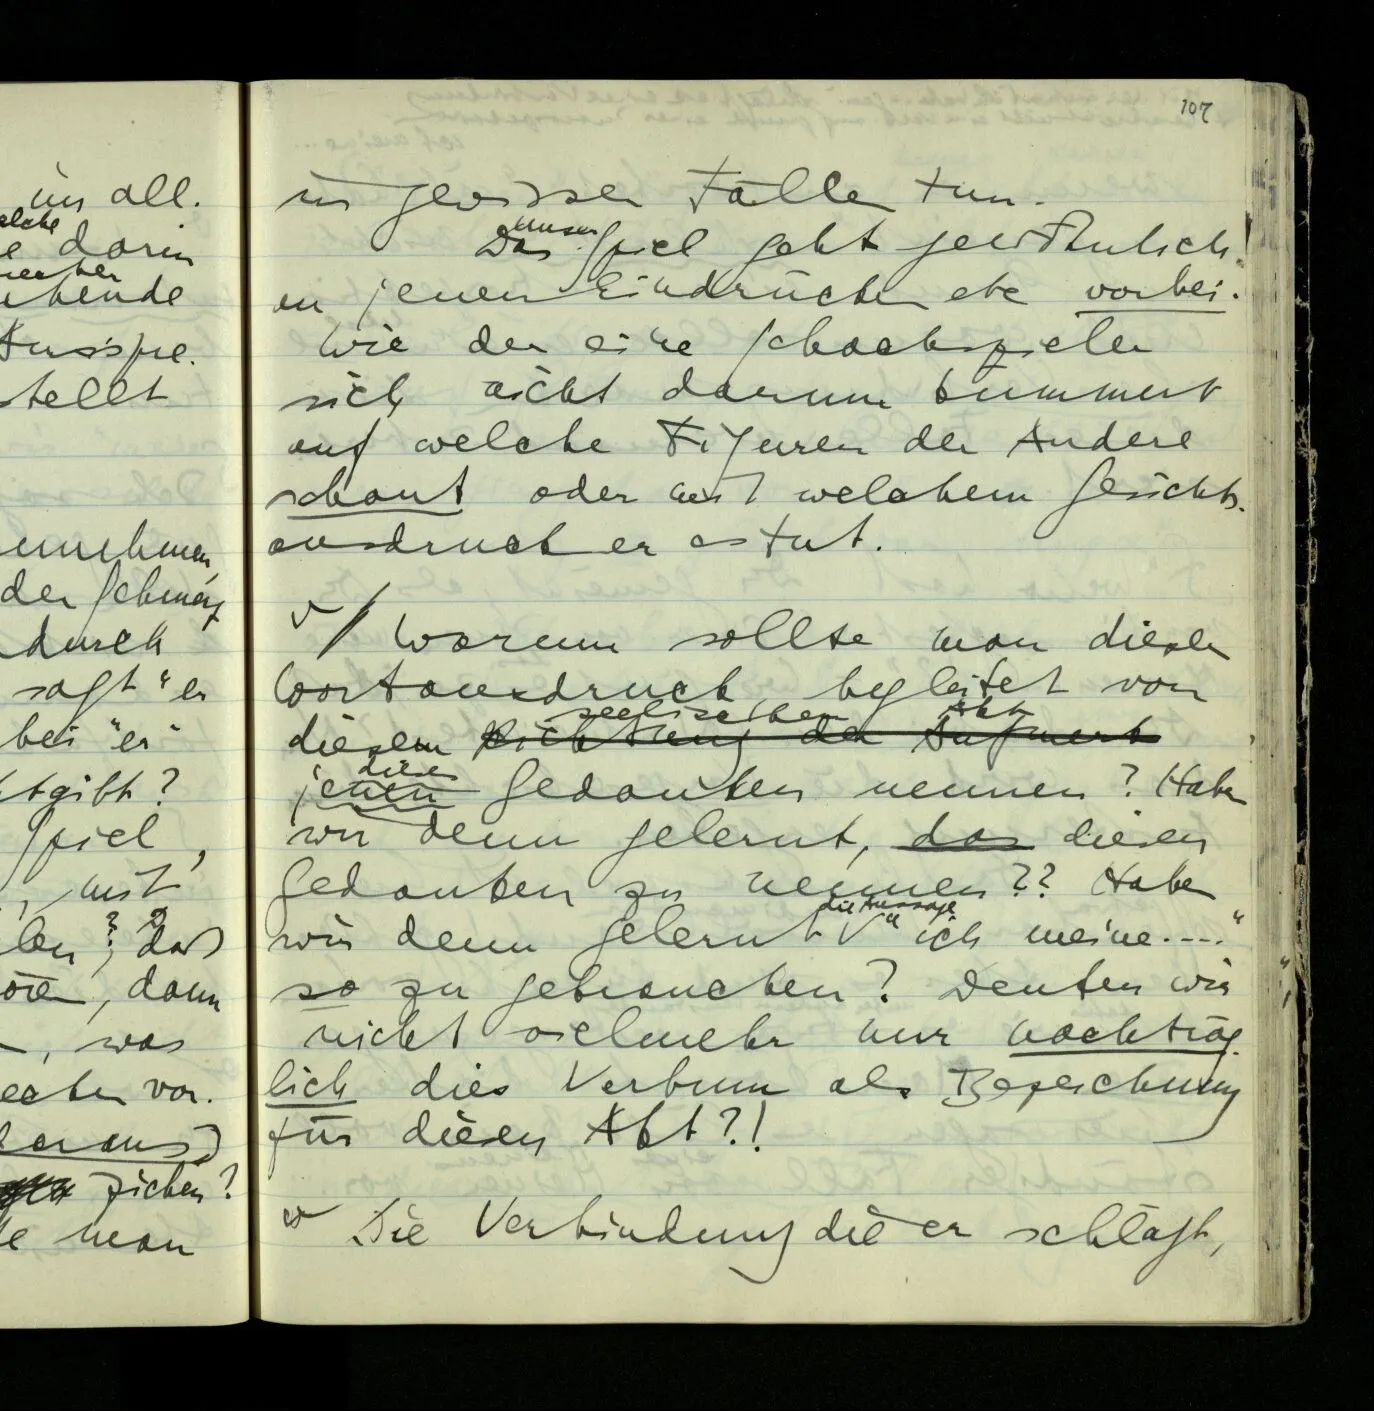 im all.
welche
e darin
ehende
Ausspre.
stellt
nehmen,
der Schmerz
durch
sagt "er
bei "er"
tgibt?
Spiel,
, mit
len ; daß
ören, dann
, was
recher vor.
heraus
ziehen?
te man
107
in gewissen Fällen tun.
unser
Das Spiel geht gewöhnlich
an jenen Eindrücken etc vorbei.
Wie der eine Schachspieler
sich nicht darum kümmert
auf welche Figuren der Andere
schaut oder mit welchem Gesichts-
ausdruck er es tut.
∨ / Warum sollte man diesen
Wortausdruck begleitet von
seelischen Akt
diesem Richtung der Aufmerk
diesen
jenen Gedanken nennen? Haben
wir denn gelernt, das diesen
Gedanken zu nennen?? Haben
die Aussage
wir denn gelernt ∨ "ich meine...."
so zu gebrauchen? Deuten wir
nicht vielmehr nur nachträg-
lich dies Verbum als Bezeichnung
für diesen Akt?!
∨ Die Verbindung die er schlägt,